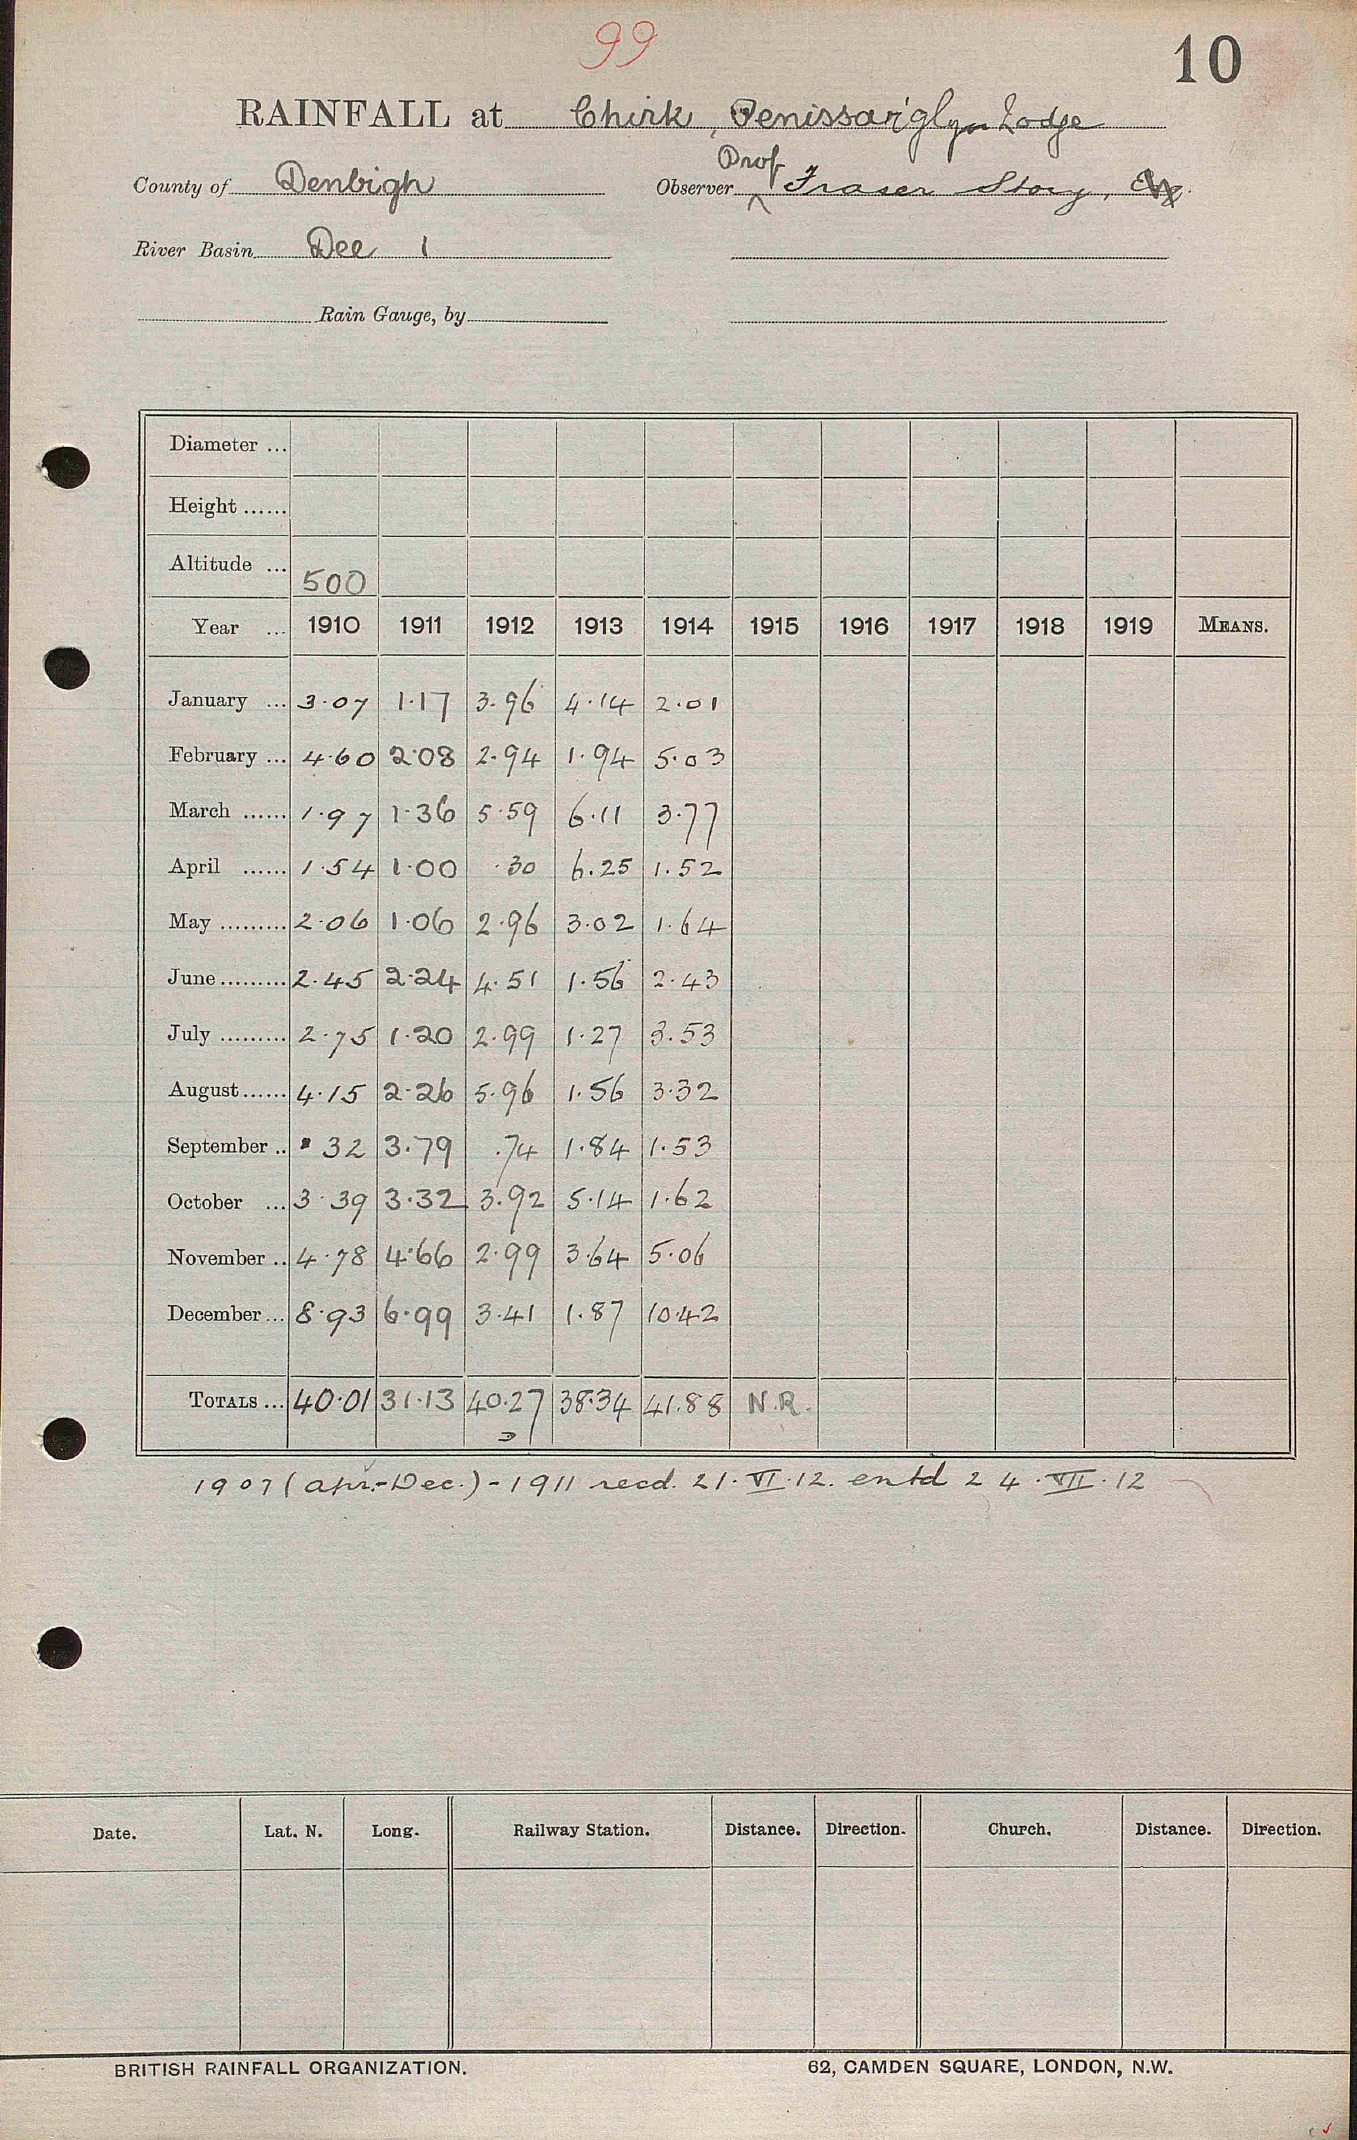 99
10
RAINFALL at Chirk, Penissar'glyn Lodge
Prof
County of Denbigh Observer ^ Fraser Story, Esq.
River Basin Dee 1
Rain Gauge, by
Diameter ...
Height ......
Altitude ... 500
Year ... 1910 1911 1912 1913 1914 1915 1916 1917 1918 1919 MEANS.
January ... 3·07 1·17 3·96 4·14 2·01
February ... 4·60 2·08 2·94 1·94 5·03
March ...... 1·97 1·36 5·59 6·11 3·77
April ...... 1·54 1·00 ·30 6·25 1·52
May ......... 2·06 1·06 2·96 3·02 1·64
June ......... 2·45 2·24 4·51 1·56 2·43
July ......... 2·75 1·20 2·99 1·27 3·53
August ...... 4·15 2·26 5·96 1·56 3·32
September .. ·32 3·79 ·74 1·84 1·53
October ... 3·39 3·32 3·92 5·14 1·62
November .. 4·78 4·66 2·99 3·64 5·06
December ... 8·93 6·99 3·41 1·87 10·42
TOTALS ... 40·01 31·13 40·27 38·34 41·88 N.R.
1907 (Apr.-Dec.) - 1911 recd. 21·VI·12. entd 24·VII·12
Date. Lat. N. Long. Railway Station. Distance. Direction. Church. Distance. Direction.
BRITISH RAINFALL ORGANIZATION. 62, CAMDEN SQUARE, LONDON, N.W.